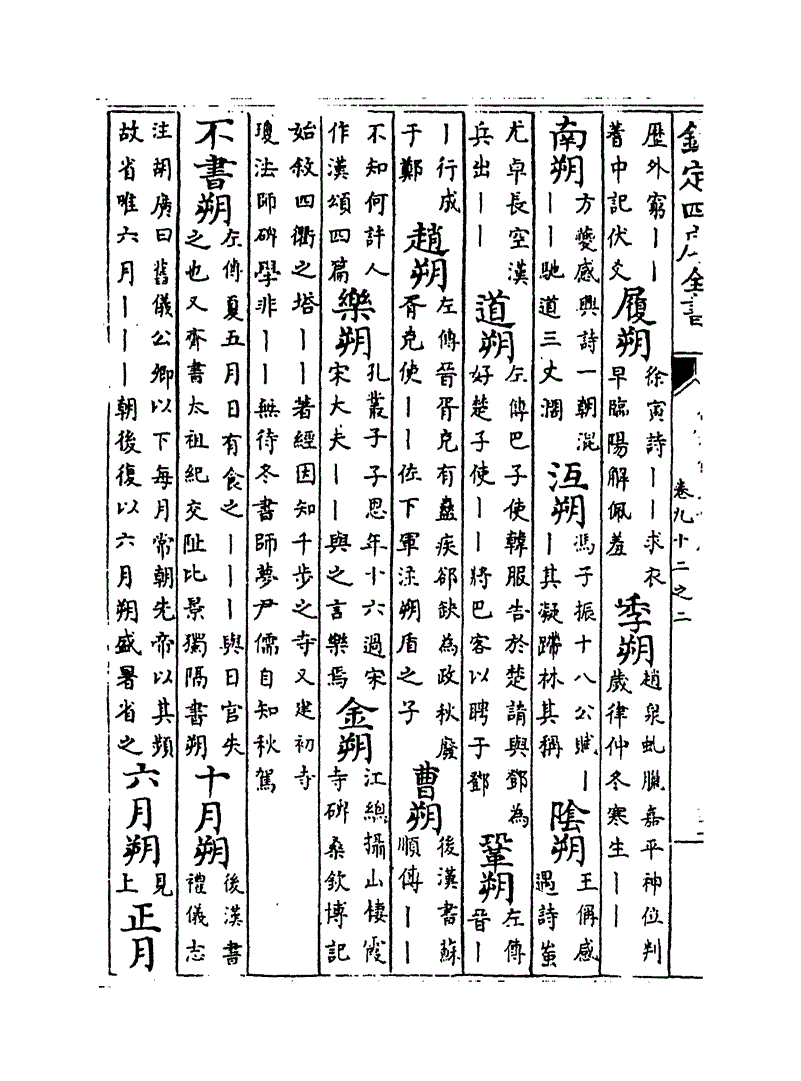 欽定四庫全書
卷九十二之二
歴外窮｜｜
著中記伏爻
履朔
徐寅詩｜｜求衣
早臨陽解佩羞
季朔
趙泉虬臘嘉平神位判
歲律仲冬寒生｜｜
南朔
方夔感興詩一朝混
｜｜馳道三丈濶
沍朔
馮子振十八公賦｜
｜其凝蹛林其稱
陰朔
王偁感
遇詩蚩
尤卓長空漢
兵出｜｜
道朔
左傳巴子使韓服告於楚請與鄧為
好楚子使｜｜將巴客以聘于鄧
鞏朔
左傳
晉｜
｜行成
于鄭
趙朔
左傳晉胥克有蠱疾郤缺為政秋廢
胥克使｜｜佐下軍注朔盾之子
曹朔
後漢書蘇
順傳｜｜
不知何許人
作漢頌四篇
樂朔
孔叢子子思年十六過宋
宋大夫｜｜與之言樂焉
金朔
江總攝山棲霞
寺碑桑欽博記
始敘四衢之塔｜｜著經因知千步之寺又建初寺
瓊法師碑學非｜｜無待冬書師夢尹儒自知秋駕
不書朔
左傳夏五月日有食之｜｜｜與日官失
之也又齊書太祖紀交阯比景獨隔書朔
十月朔
後漢書
禮儀志
注胡廣曰舊儀公卿以下每月常朝先帝以其頻
故省唯六月｜｜｜朝後復以六月朔盛暑省之
六月朔
見
上
正月